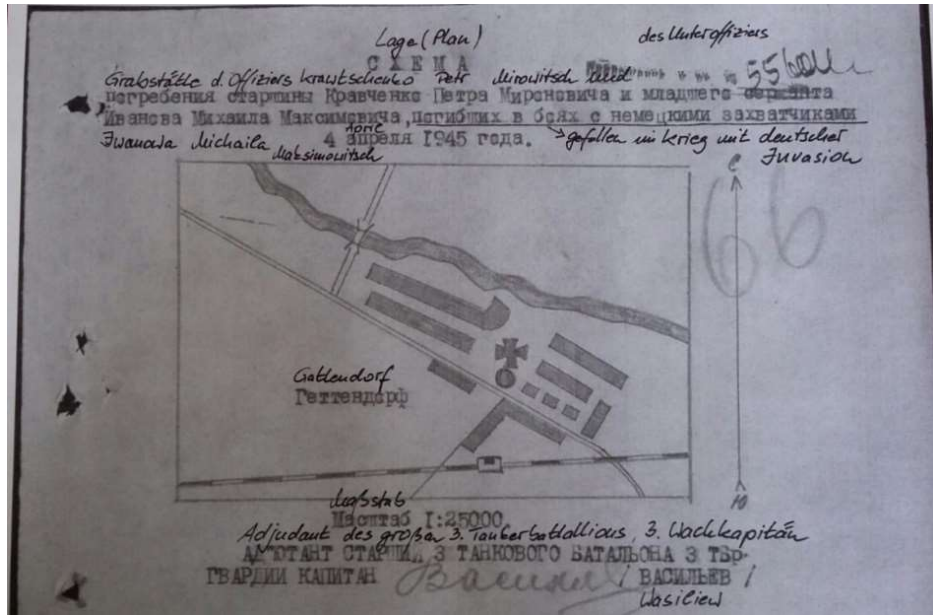 Lage (Plan) des Unteroffiziers
СХЕМА
5560
Grabstätte d. Offiziers Krawtschenko Petr Mirowitsch und
погребения старшины Кравченко Петра Мироновича и младшего сержанта
Иванова Михаила Максимовича, погибших в боях с немецкими захватчиками
April
4 апреля 1945 года.
Iwanowa Michaila Maksimowitsch
gefallen im Krieg mit deutscher Invasion
С
66
Gattendorf
Геттендорф
Ю
Maßstab
Масштаб 1:25000
Adjudant des großen 3. Tankerbatallions, 3. Wachkapitän
АДЮТАНТ СТАРШИЙ 3 ТАНКОВОГО БАТАЛЬОНА 3 ТБР-
ГВАРДИИ КАПИТАН / ВАСИЛЬЕВ /
Wasiliew